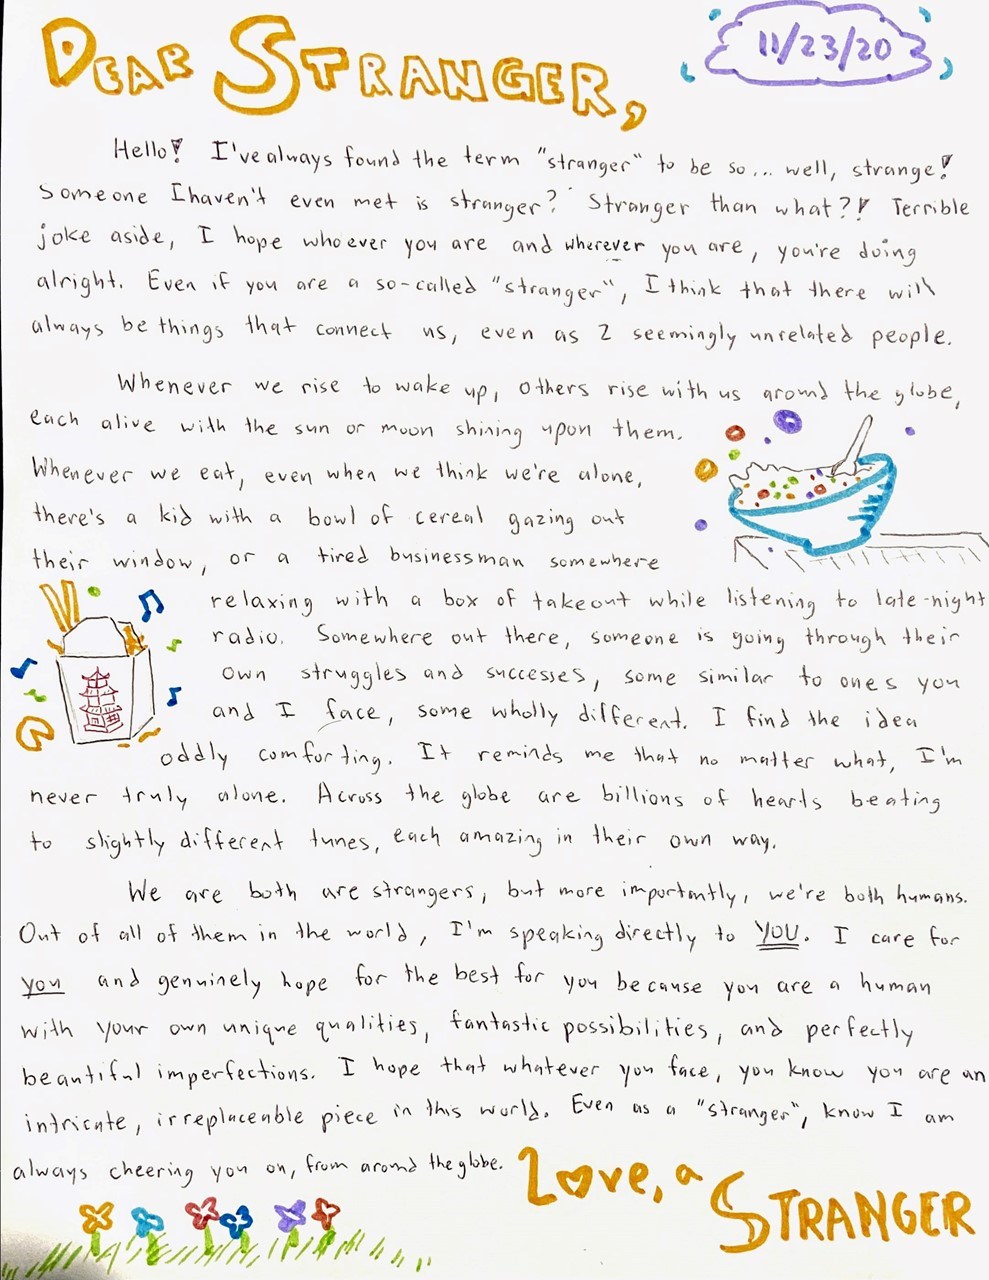 DEAR STRANGER,
11/23/20
Hello! I've always found the term "stranger" to be so... well, strange!
Someone I haven't even met is stranger? Stranger than what?! Terrible
joke aside, I hope whoever you are and wherever you are, you're doing
alright. Even if you are a so-called "stranger", I think that there will
always be things that connect us, even as 2 seemingly unrelated people.
Whenever we rise to wake up, others rise with us around the globe,
each alive with the sun or moon shining upon them.
Whenever we eat, even when we think we're alone,
there's a kid with a bowl of cereal gazing out
their window, or a tired businessman somewhere
relaxing with a box of takeout while listening to late-night
radio. Somewhere out there, someone is going through their
own struggles and successes, some similar to ones you
and I face, some wholly different. I find the idea
oddly comforting. It reminds me that no matter what, I'm
never truly alone. Across the globe are billions of hearts beating
to slightly different tunes, each amazing in their own way.
We are both are strangers, but more importantly, we're both humans.
Out of all of them in the world, I'm speaking directly to YOU. I care for
you and genuinely hope for the best for you because you are a human
with your own unique qualities, fantastic possibilities, and perfectly
beautiful imperfections. I hope that whatever you face, you know you are an
intricate, irreplaceable piece in this world. Even as a "stranger", know I am
always cheering you on, from around the globe.
Love, a
STRANGER